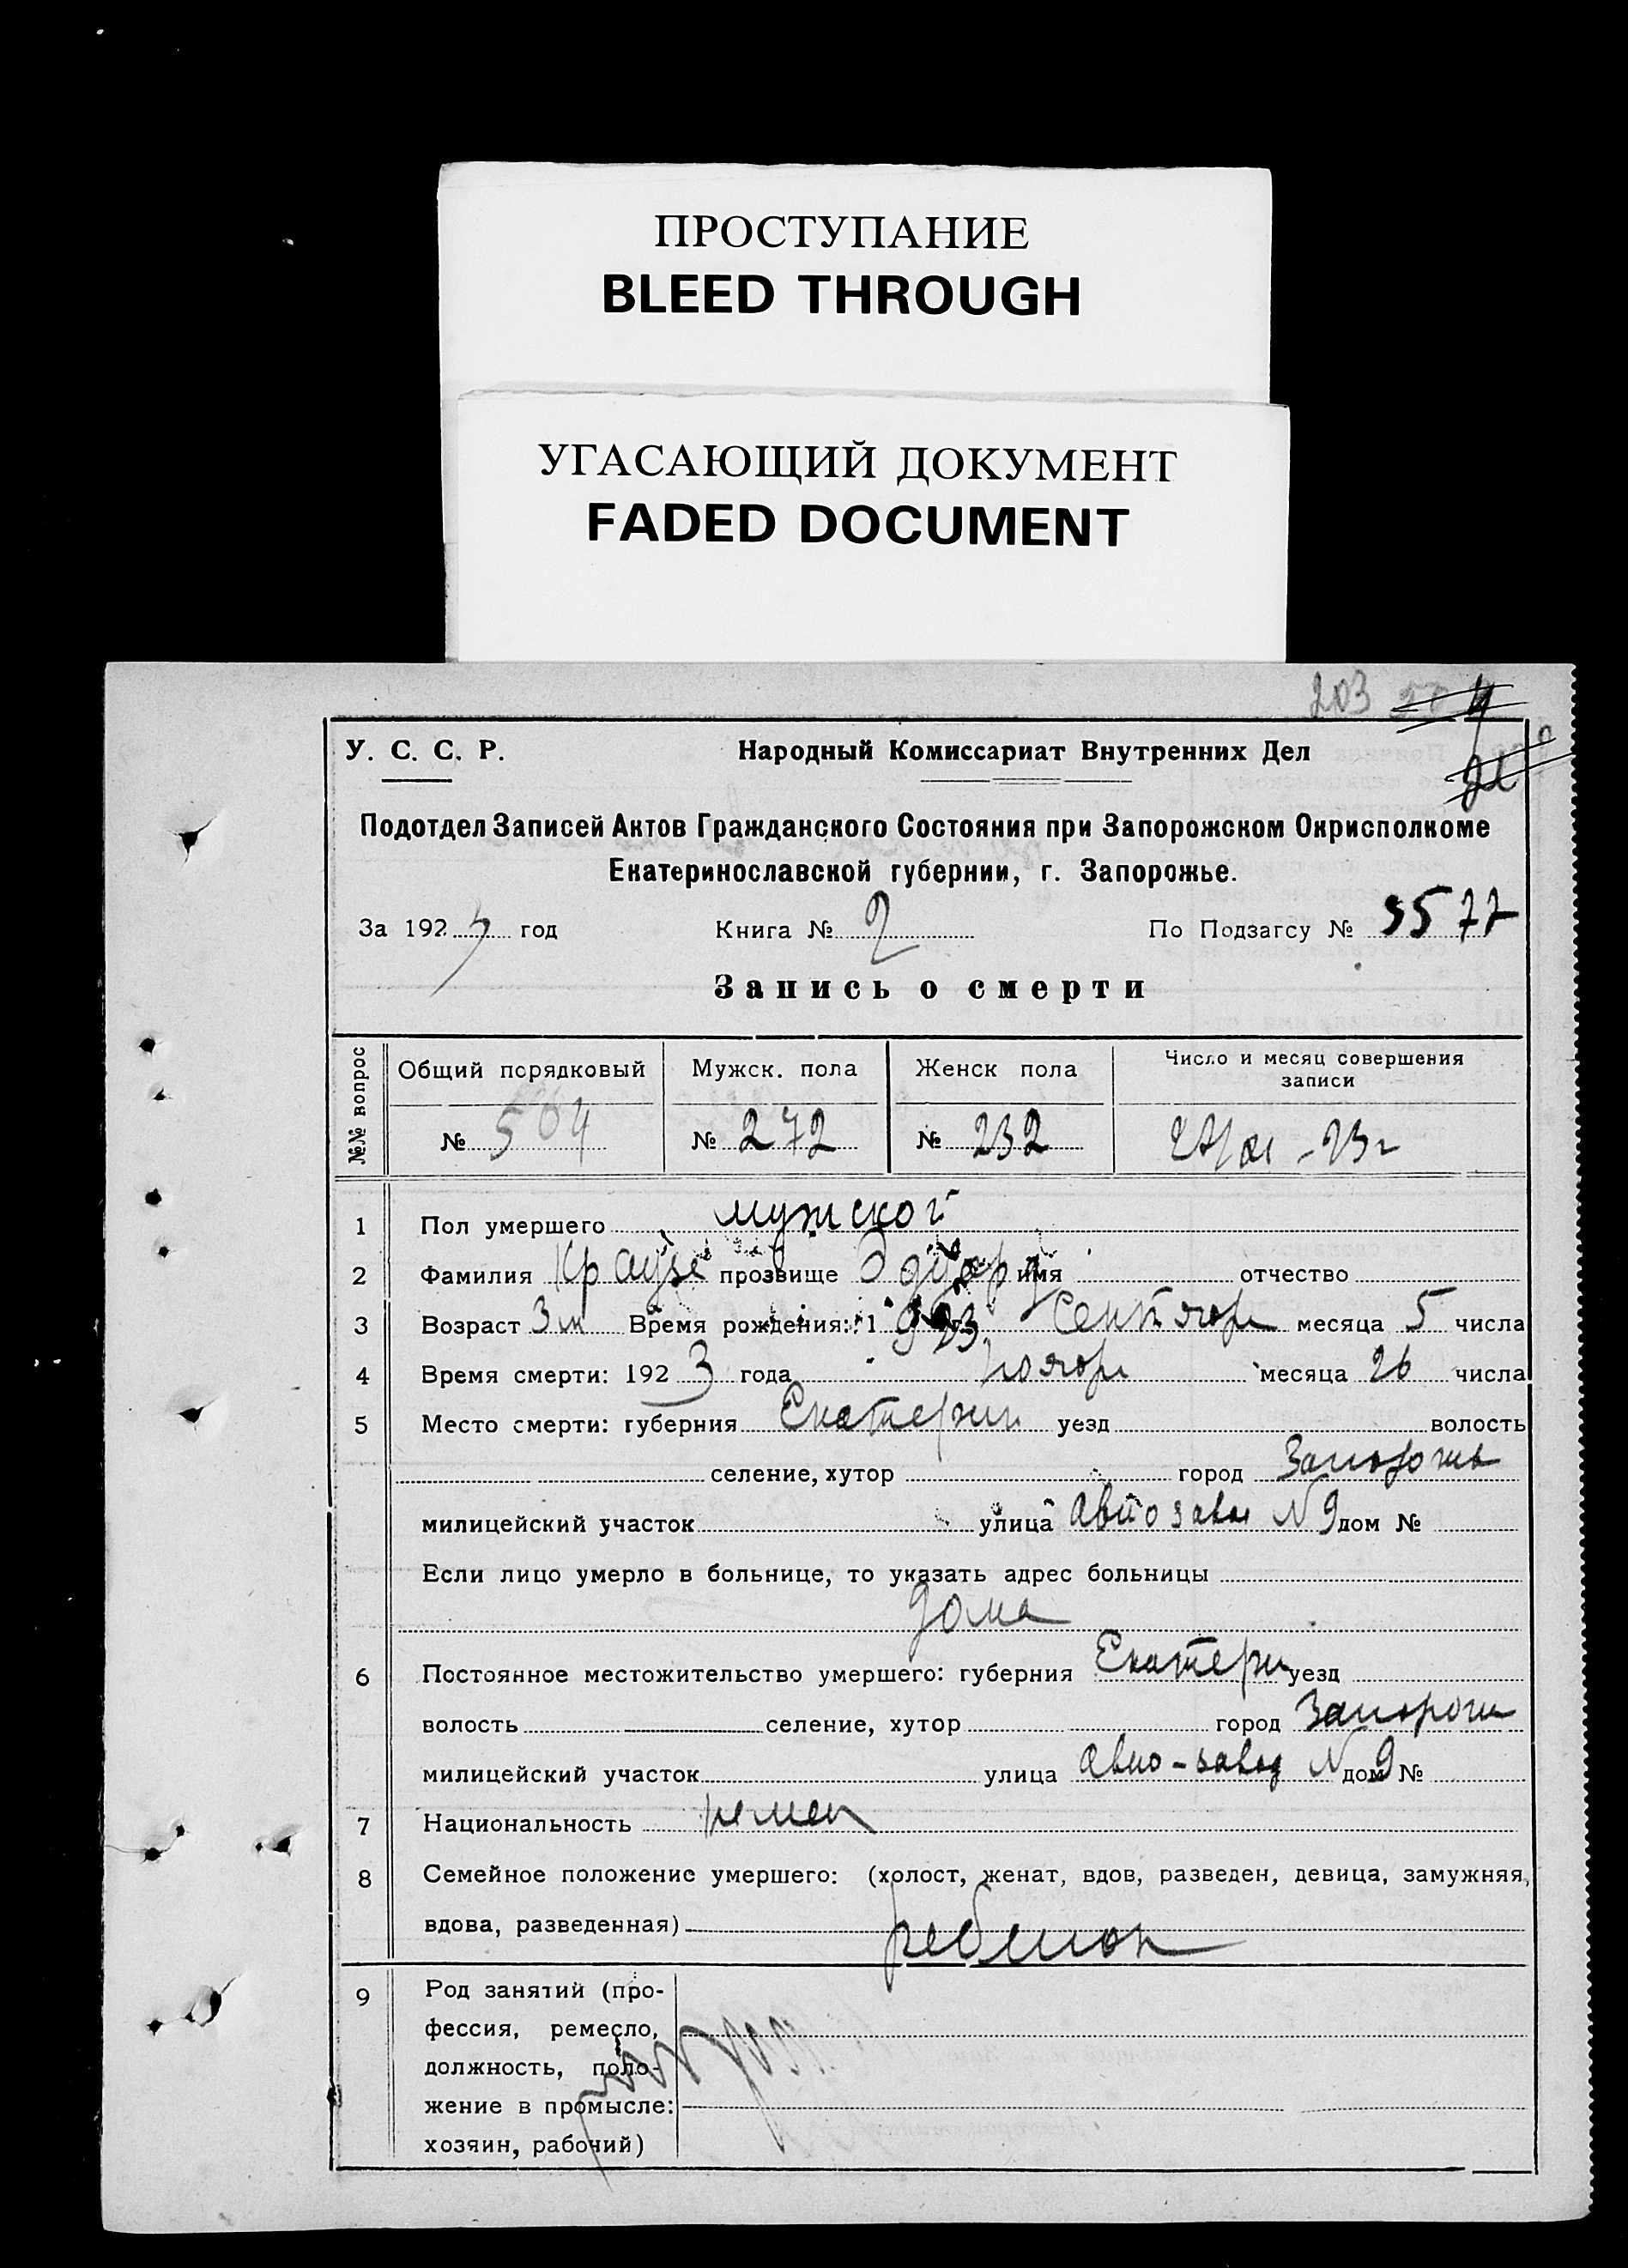 ПРОСТУПАНИЕ
BLEED THROUGH
УГАСАЮЩИЙ ДОКУМЕНТ
FADED DOCUMENT
203
У. С. С. Р. Народный Комиссариат Внутренних Дел
Подотдел Записей Актов Гражданского Состояния при Запорожском Окрисполкоме
Екатеринославской губернии, г. Запорожье.
За 1923 год Книга № 2 По Подзагсу № 3577
Запись о смерти
№№ вопрос Общий порядковый Мужск. пола Женск пола Число и месяц совершения
записи
№ 504 № 272 № 232 27/XI - 23 г
1 Пол умершего мужской
2 Фамилия Краузе прозвище Эдуард имя отчество
3 Возраст 3 м Время рождения: 1923 Сентябр месяца 5 числа
4 Время смерти: 1923 года ноябр месяца 26 числа
5 Место смерти: губерния Екатерин уезд волость
селение, хутор город Запорожье
милицейский участок улица Авиозавод N 9 дом №
Если лицо умерло в больнице, то указать адрес больницы
дома
6 Постоянное местожительство умершего: губерния Екатерин уезд
волость селение, хутор город Запорож
милицейский участок улица Авио-завод N 9 дом №
7 Национальность немец
8 Семейное положение умершего: (холост, женат, вдов, разведен, девица, замужняя,
вдова, разведенная) ребенок
9 Род занятий (про-
фессия, ремесло,
должность, поло-
жение в промысле:
хозяин, рабочий)